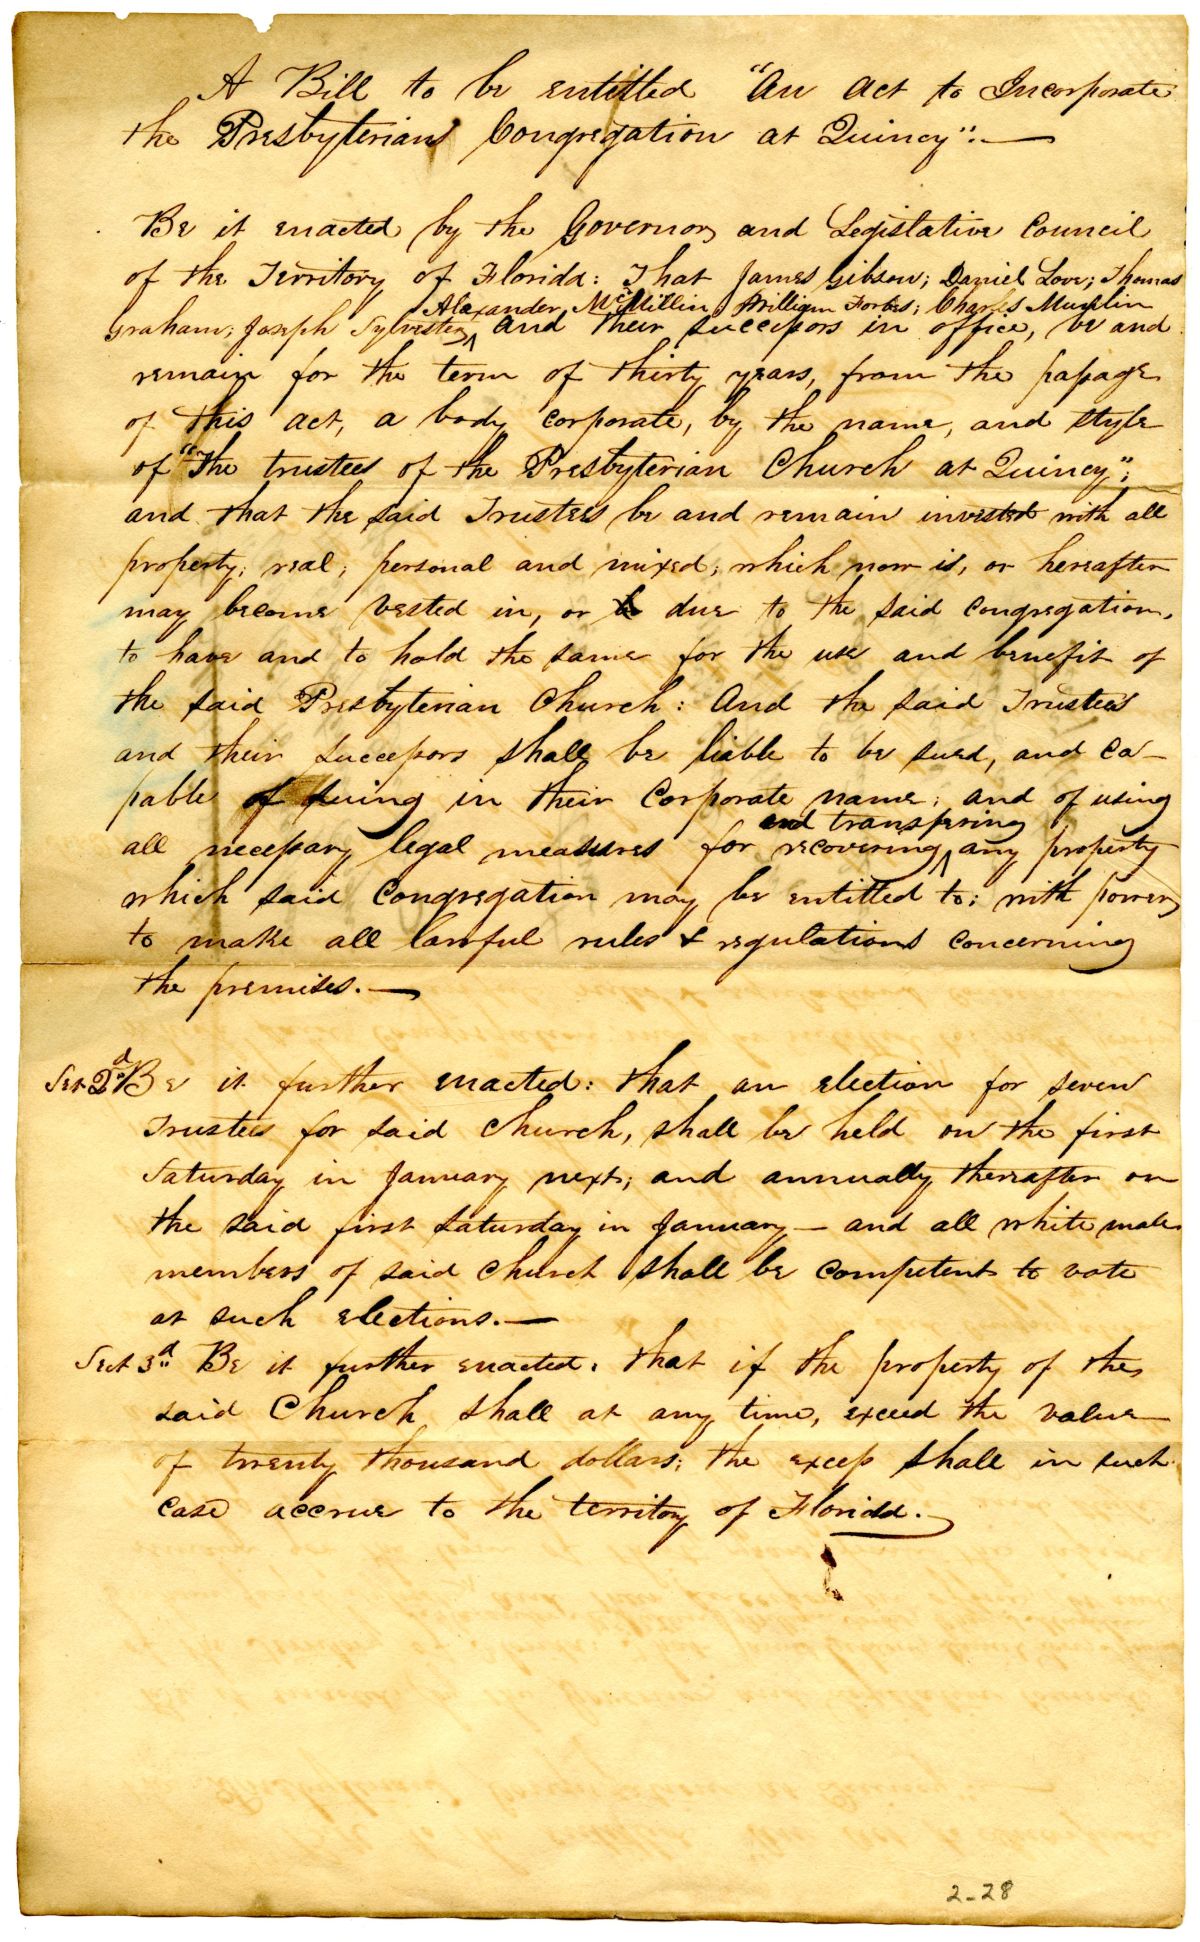 A Bill to be entitled "An Act to Incorporate
the Presbyterian Congregation at Quincy":—
Be it enacted by the Governor and Legislative Council
of the Territory of Florida: That James Gibson; Daniel Love; Thomas
Alexander McMillin; William Forbes; Charles
Graham; Joseph Sylvester ^ and their successors in office, be and
remain for the term of thirty years, from the passage
of this act, a body corporate, by the name, and style
of "The trustees of the Presbyterian Church at Quincy";
and that the said Trustees be and remain invested with all
property; real; personal and mixed; which now is, or hereafter
may become vested in, or due to the said congregation,
to have and to hold the same for the use and benefit of
the said Presbyterian Church: And the said Trustees
and their successors shall be liable to be sued, and ca-
pable of suing in their Corporate name; and of using
and transfering
all necessary legal measures for recovering ^ any property
which said Congregation may be entitled to; with power
to make all lawful rules & regulations concerning
the premises.—
Sec 2d Be it further enacted: that an election for seven
Trustees for said Church, shall be held on the first
Saturday in January next; and annually thereafter on
the said first Saturday in January — and all white male
members of said Church shall be competent to vote
at such elections.—
Sect 3d Be it further enacted: that if the property of the
said Church shall at any time, exceed the value
of twenty thousand dollars; the excess shall in such
case accrue to the territory of Florida.
2-28